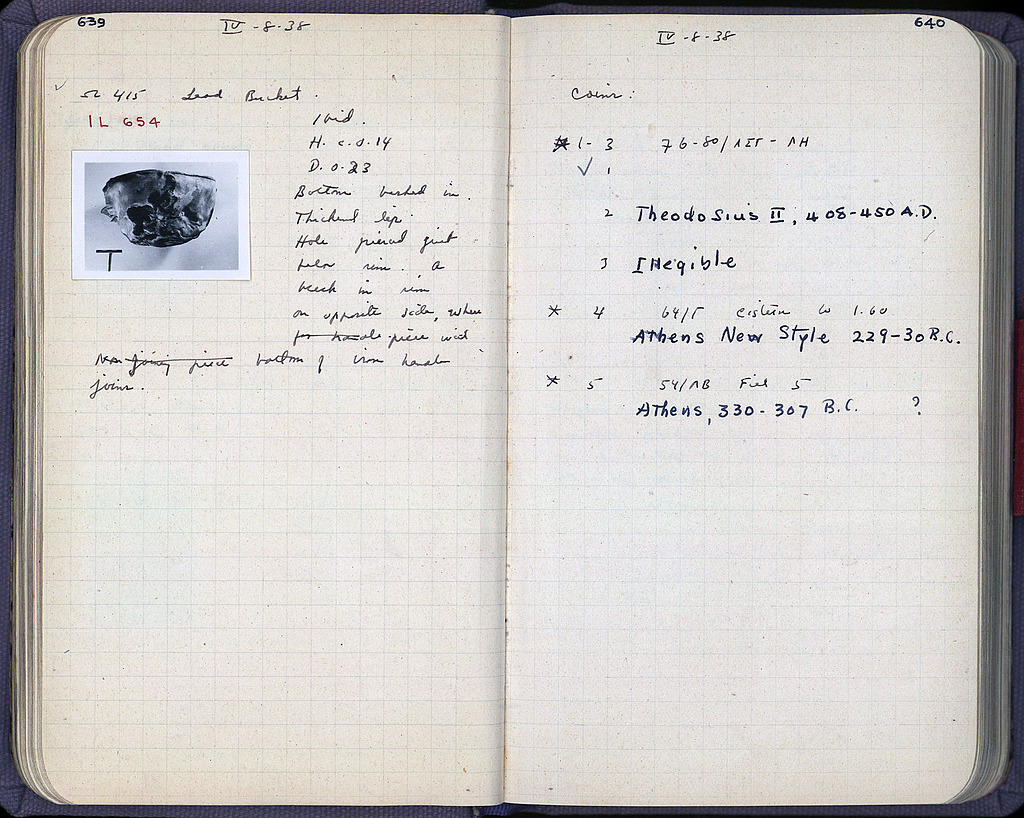 639
IV -8-38
Ω 415 Lead Bucket.
IL 654
Ibid.
H. c. 0.14
D. 0.23
Bottom bashed in.
Thickened lip.
Hole pierced just
below rim. A
break in rim
on opposite side, where
for handle piece with
Non joining piece bottom of iron handle
joins.
T
640
IV -8-38
Coins:
1-3 76-80/ΛΣΤ-ΛΗ
✓ 1
2 Theodosius II, 408-450 A.D.
3 Illegible
* 4 64/Γ cistern to 1.60
Athens New Style 229-30 B.C.
* 5 54/ΛΒ Fill 5
Athens, 330-307 B.C. ?